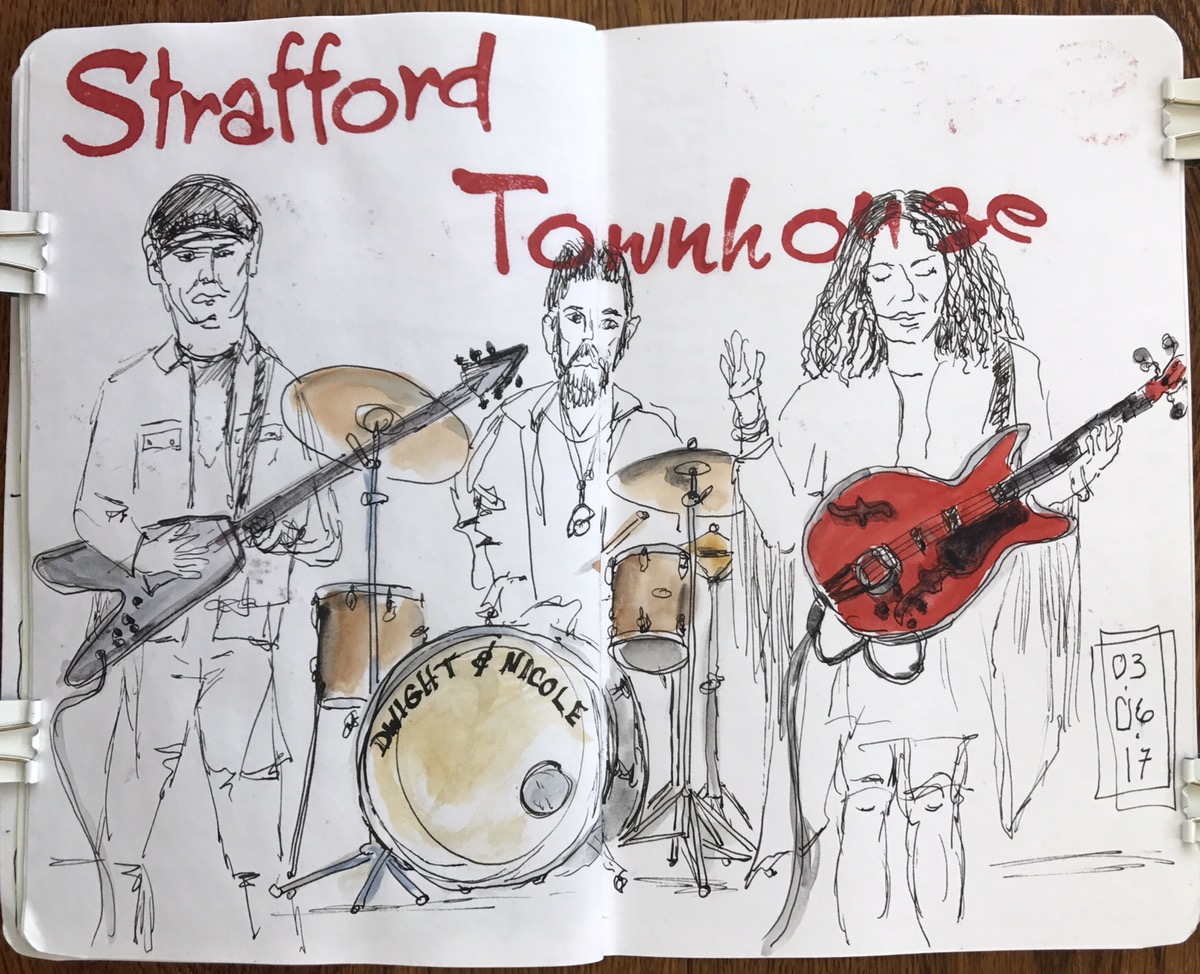 Strafford
Townhouse
DWIGHT & NICOLE
03
06
17